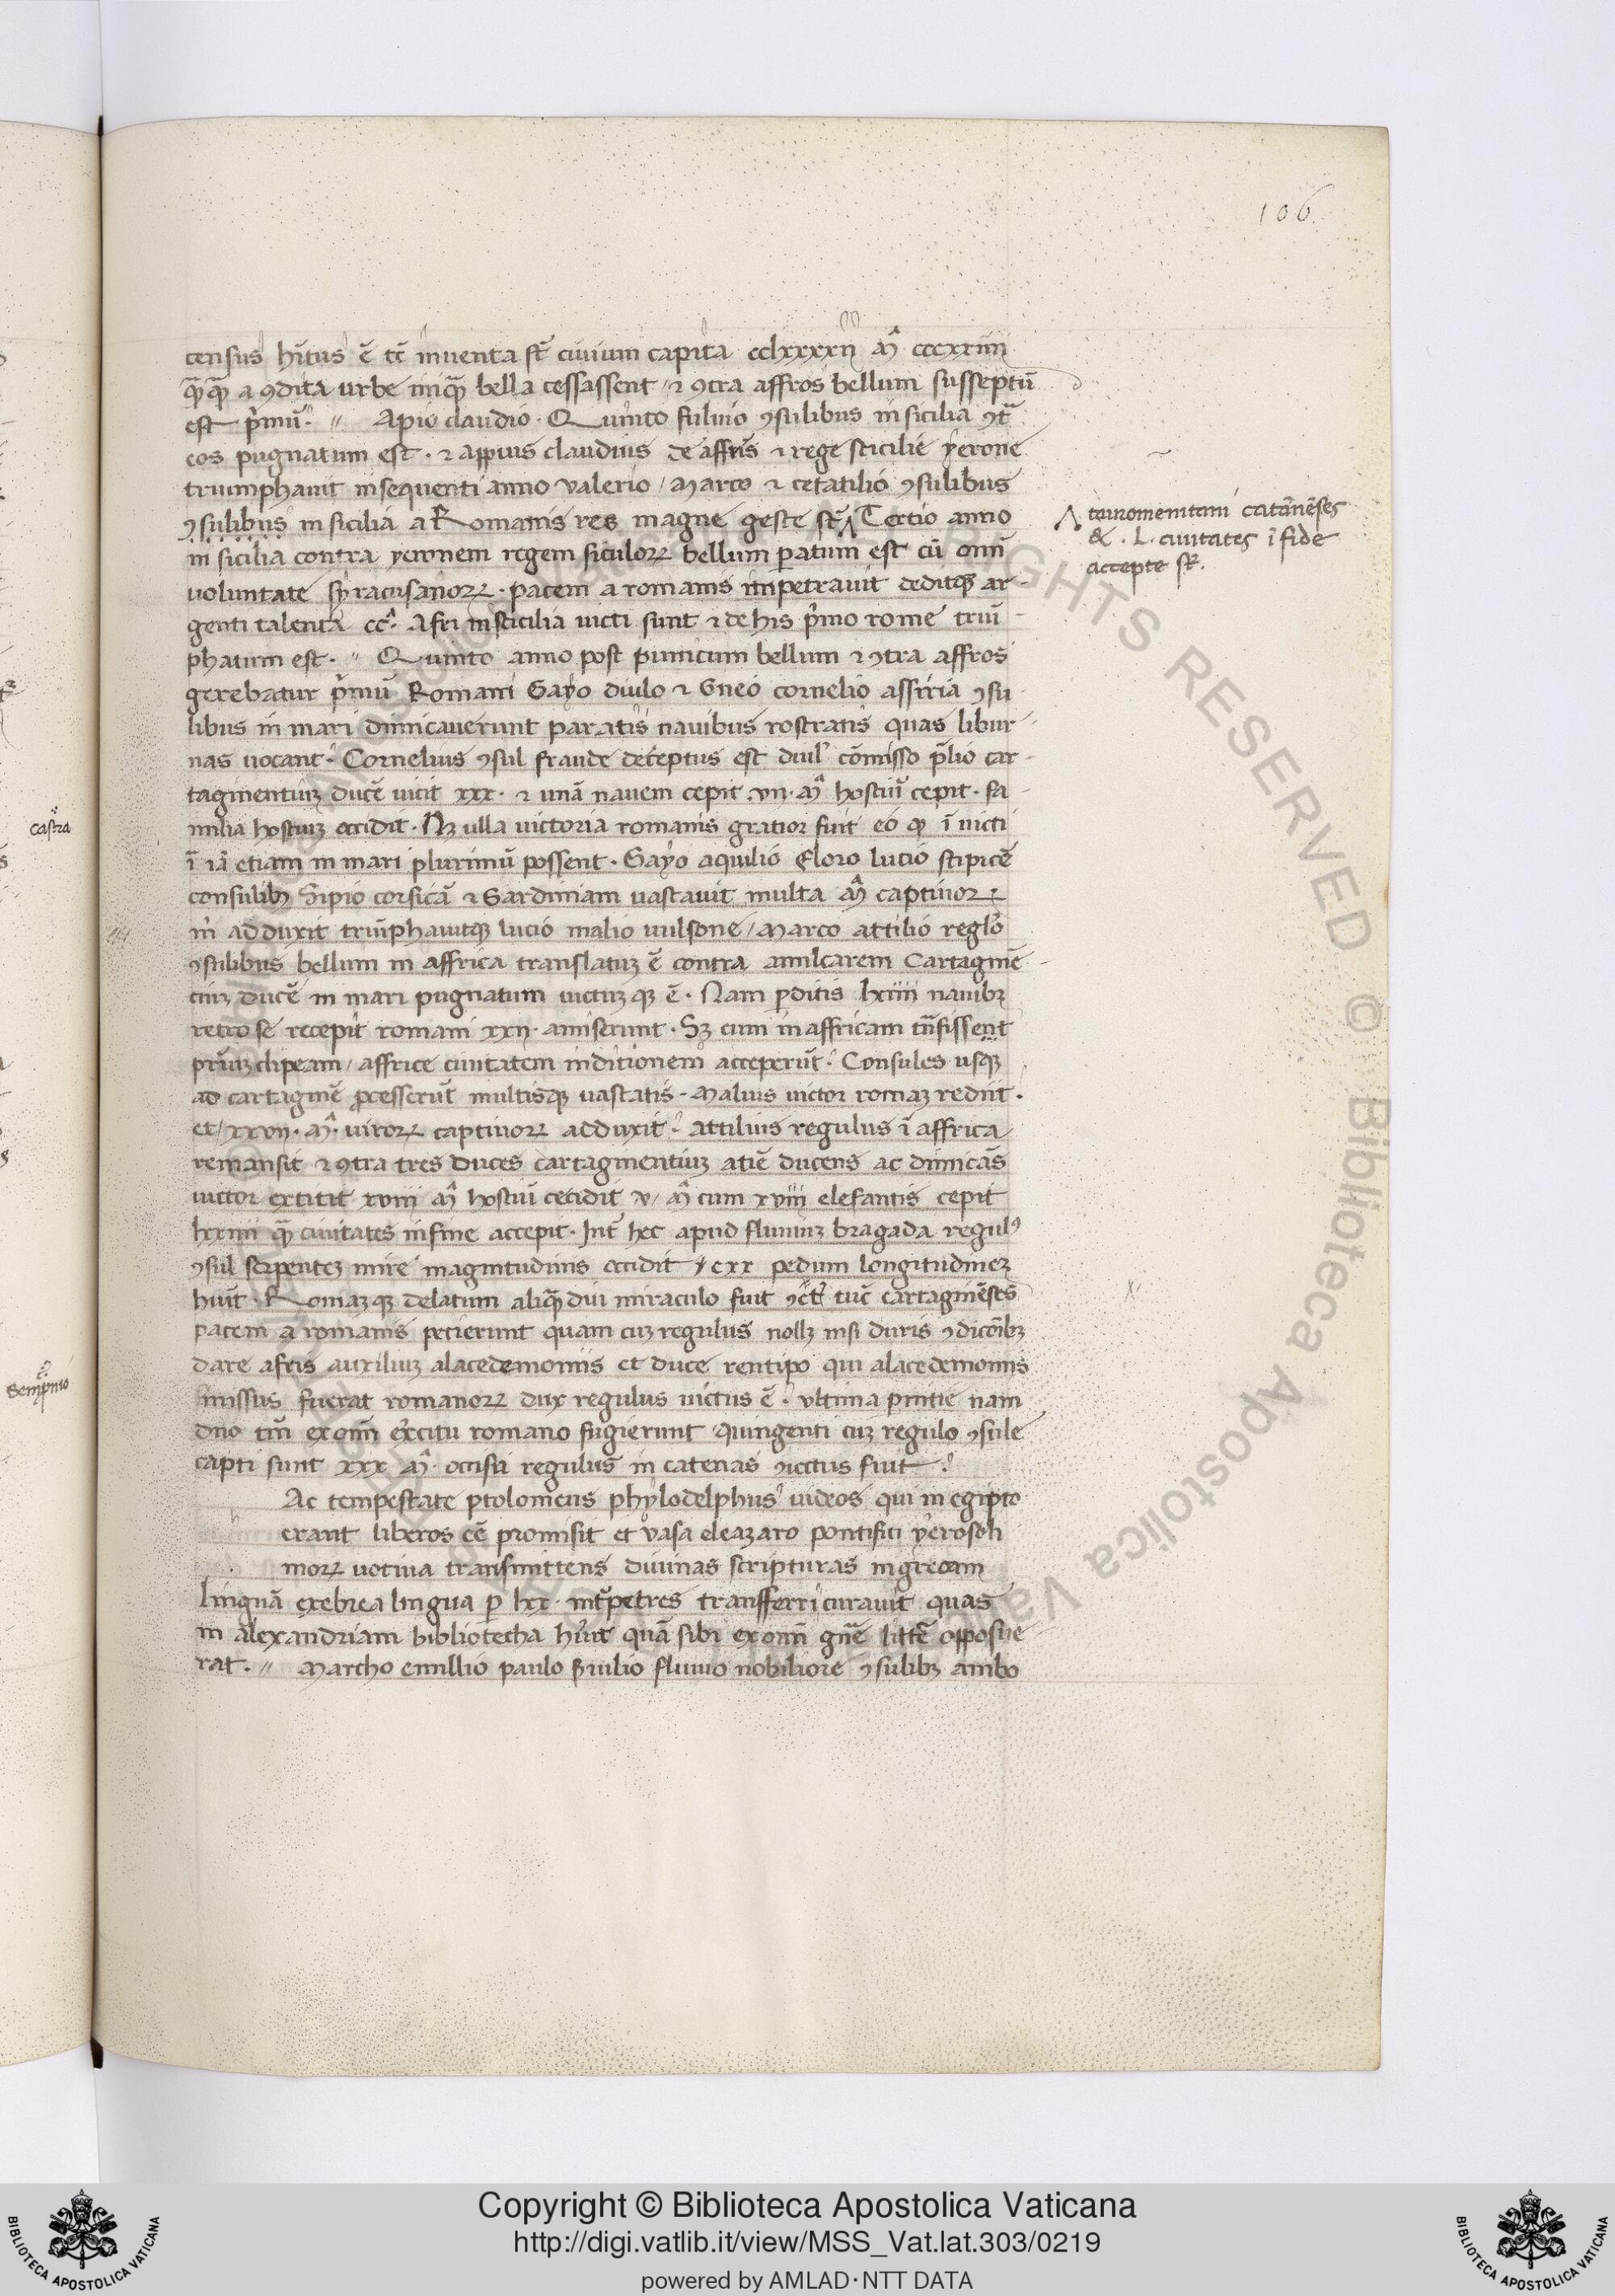 106
census hītus ē tc̄ inventa st̄ civium capita cclxxxxii m̂ cccxxiiii
qq̄ a ꝯdita urbe nūq̄ bella cessassent ⁊ ꝯtra affros bellum susseptū
est p̄mū. // Apio claudio. Quinto fulvio ꝯsulibus in sicilia ꝯt̄
eos pugnatum est. ⁊ appius claudius de affris ⁊ rege sticilie yerone
triumphavit insequenti anno valerio / Marco ⁊ cetatilio ꝯsulibus
ꝯsulibus in sicilia a Romanis res magne geste st̄ ʌ Tertio anno
ʌ tauromenitani catānēses
&. L. civitates ī fide
accepte st̄.
in sicilia contra yeronem regem siculoꝝ bellum paratum est cū om̄
voluntate syracusanoꝝ. pacem a romanis impetravit deditqꝫ ar-
genti talenta cc. Afri in sticilia victi sunt ⁊ de his p̄mo rome triū-
phatum est. // Quinto anno post punicum bellum ⁊ ꝯtra affros
gerebatur p̄mū Romani Gayo duilo ⁊ Gneo cornelio assiria ꝯsu
libus in mari dimicaverunt paratis navibus rostratis quas libur-
nas vocant. Cornelius ꝯsul fraude deceptus est duil' cōmisso p̄lio car-
taginentiuꝫ ducē vicit xxx. ⁊ unā navem cepit vii. m̂ hostiū cepit. fa-
milia hostiuꝫ occidit. Nꝫ ulla victoria romanis gratior fuit eo ꝙ ī victi
ī iā etiam in mari plurimū possent. Gayo aquilio Eloro lucio stipicē
consulibꝫ Sipio corsicā ⁊ Sardiniam vastavit multa m̂ captivoꝝ
in adduxit triūphavitqꝫ lucio malio vulsone / Marco attilio reglo
ꝯsulibus bellum in affrica translatuꝫ ē contra amilcarem Cartaginē-
tiuꝫ ducē in mari pugnatum victuꝫqꝫ ē. Nam perditis lxiiii navibꝫ
retro se recepit romani xxii. amiserunt. Sꝫ cum in affricam trāsissent
primuꝫ clipeam / affrice civitatem in ditionem acceperūt. Consules usqꝫ
ad cartaginē processerūt multisqꝫ vastatis. Malius victor romaꝫ rediit.
et / xxvii. m̂. viroꝝ captivoꝝ adduxit. Attilius regulus ī affrica
remansit ⁊ ꝯtra tres duces cartaginentiuꝫ atiē ducens ac dimicās
victor extitit xviii m̂ hostiū cecidit v / m̂ cum xviii elefantis cepit
lxxiiii q̄ civitates in fine accepit. Int̄ hec apud flumuꝫ bragada regul'
ꝯsul serpenteꝫ mire magnitudinis occidit / cxx pedum longitudineꝫ
huīt. Romaꝫqꝫ delatum aliq̄dui miraculo fuit tūc cartaginēses
pacem a romanis petierunt quam cuꝫ regulus nollꝫ nisi duris ꝯdicōibꝫ
dare afris auxiliuꝫ alacedemoniis et duce rentipo qui alacedemoniis
missus fuerat romanoꝝ dux regulus victus ē. ultima p̄nitie nam
duo tm̄ ex om̄i ex̄citu romano fugierunt quingenti cuꝫ regulo ꝯsule
capti sunt xxx m̂. occisa regulus in catenas ꝯiectus fuit.
Ac tempestate ptolomeus phylodelphus iudeos qui in egipto
erant liberos eē promisit et vasa eleazaro pontifici yerosoli
moꝝ votiva transmittens divinas scripturas in grecam
linguā ex ebrea lingua p lxx. int̄petres transfferri curavit quas
in alexandriam bibliotecha hūit quā sibi ex om̄i gn̄e littē opposue
rat. // Marcho emillio paulo fluvio nobiliore ꝯsulibꝫ ambo
castra
Semp̄nio
ALL RIGHTS RESERVED © Biblioteca Apostolica Vaticana
Copyright © Biblioteca Apostolica Vaticana
http://digi.vatlib.it/view/MSS_Vat.lat.303/0219
powered by AMLAD·NTT DATA
BIBLIOTECA APOSTOLICA VATICANA
BIBLIOTECA APOSTOLICA VATICANA